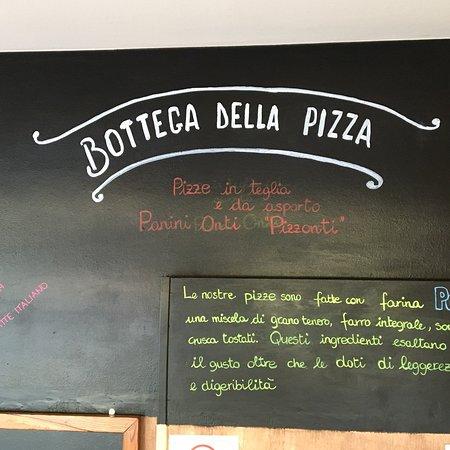 BOTTEGA DELLA PIZZA
Pizze in teglia
e da asporto
Panini Onti "Pizzonti"
NTE ITALIANO
Le nostre pizze sono fatte con farina
una miscela di grano tenero, farro integrale,
crusca tostati. Questi ingredienti esaltano
il gusto oltre che le doti di
e digeribilità